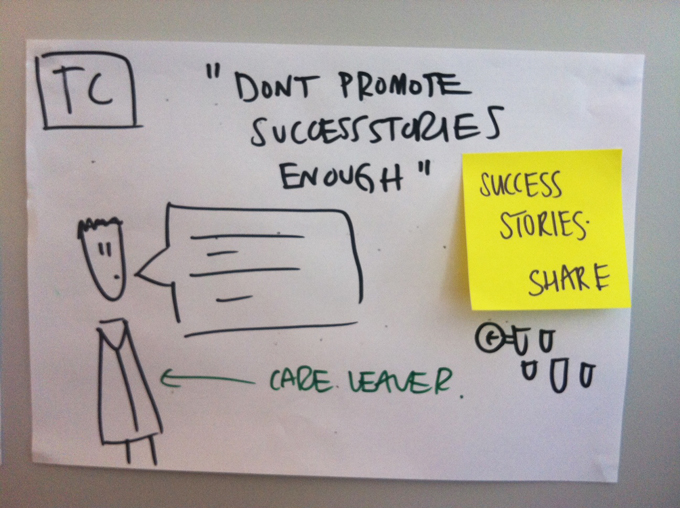 TC
"DONT PROMOTE
SUCCESS STORIES
ENOUGH"
SUCCESS
STORIES.
SHARE
CARE LEAVER.